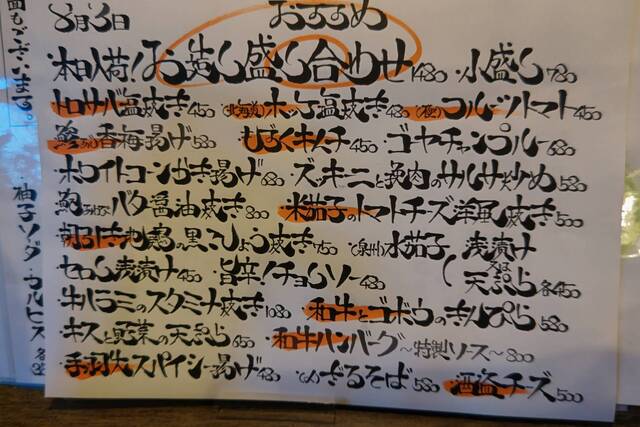 8月3日 おすすめ
本日入荷！お造し盛し合わせ1480 ・小盛し780
・トロサバ塩焼き450 ・(北海道)ホッケ塩焼き480 ・(極)フルーツトマト450
・鯵の香梅揚げ580 もずくキムチ450 ・ゴヤチャンプルー680
・ホワイトコーンかき揚げ680 ・ズッキーニと挽肉のサルサ炒め580
・バタ醤油焼き800 ・米茄子のトマトチーズ洋風焼き500
・朝引き地鶏の黒こしょう焼き750 ・(泉州)水茄子 浅漬け
・セロし浅漬け450 ・旨辛！チョレソー480 又は天ぷら各450
・牛ハラミのスタミナ焼き1080 ・和牛とゴボウのきんぴら580
・キスと野菜の天ぷら650 ・和牛ハンバーグ～特製ソース～800
・手羽先スパイシー揚げ480 ・ざるそば580 ・酒盗チーズ500
面もございます。
・柚子ソーダ・カルピス